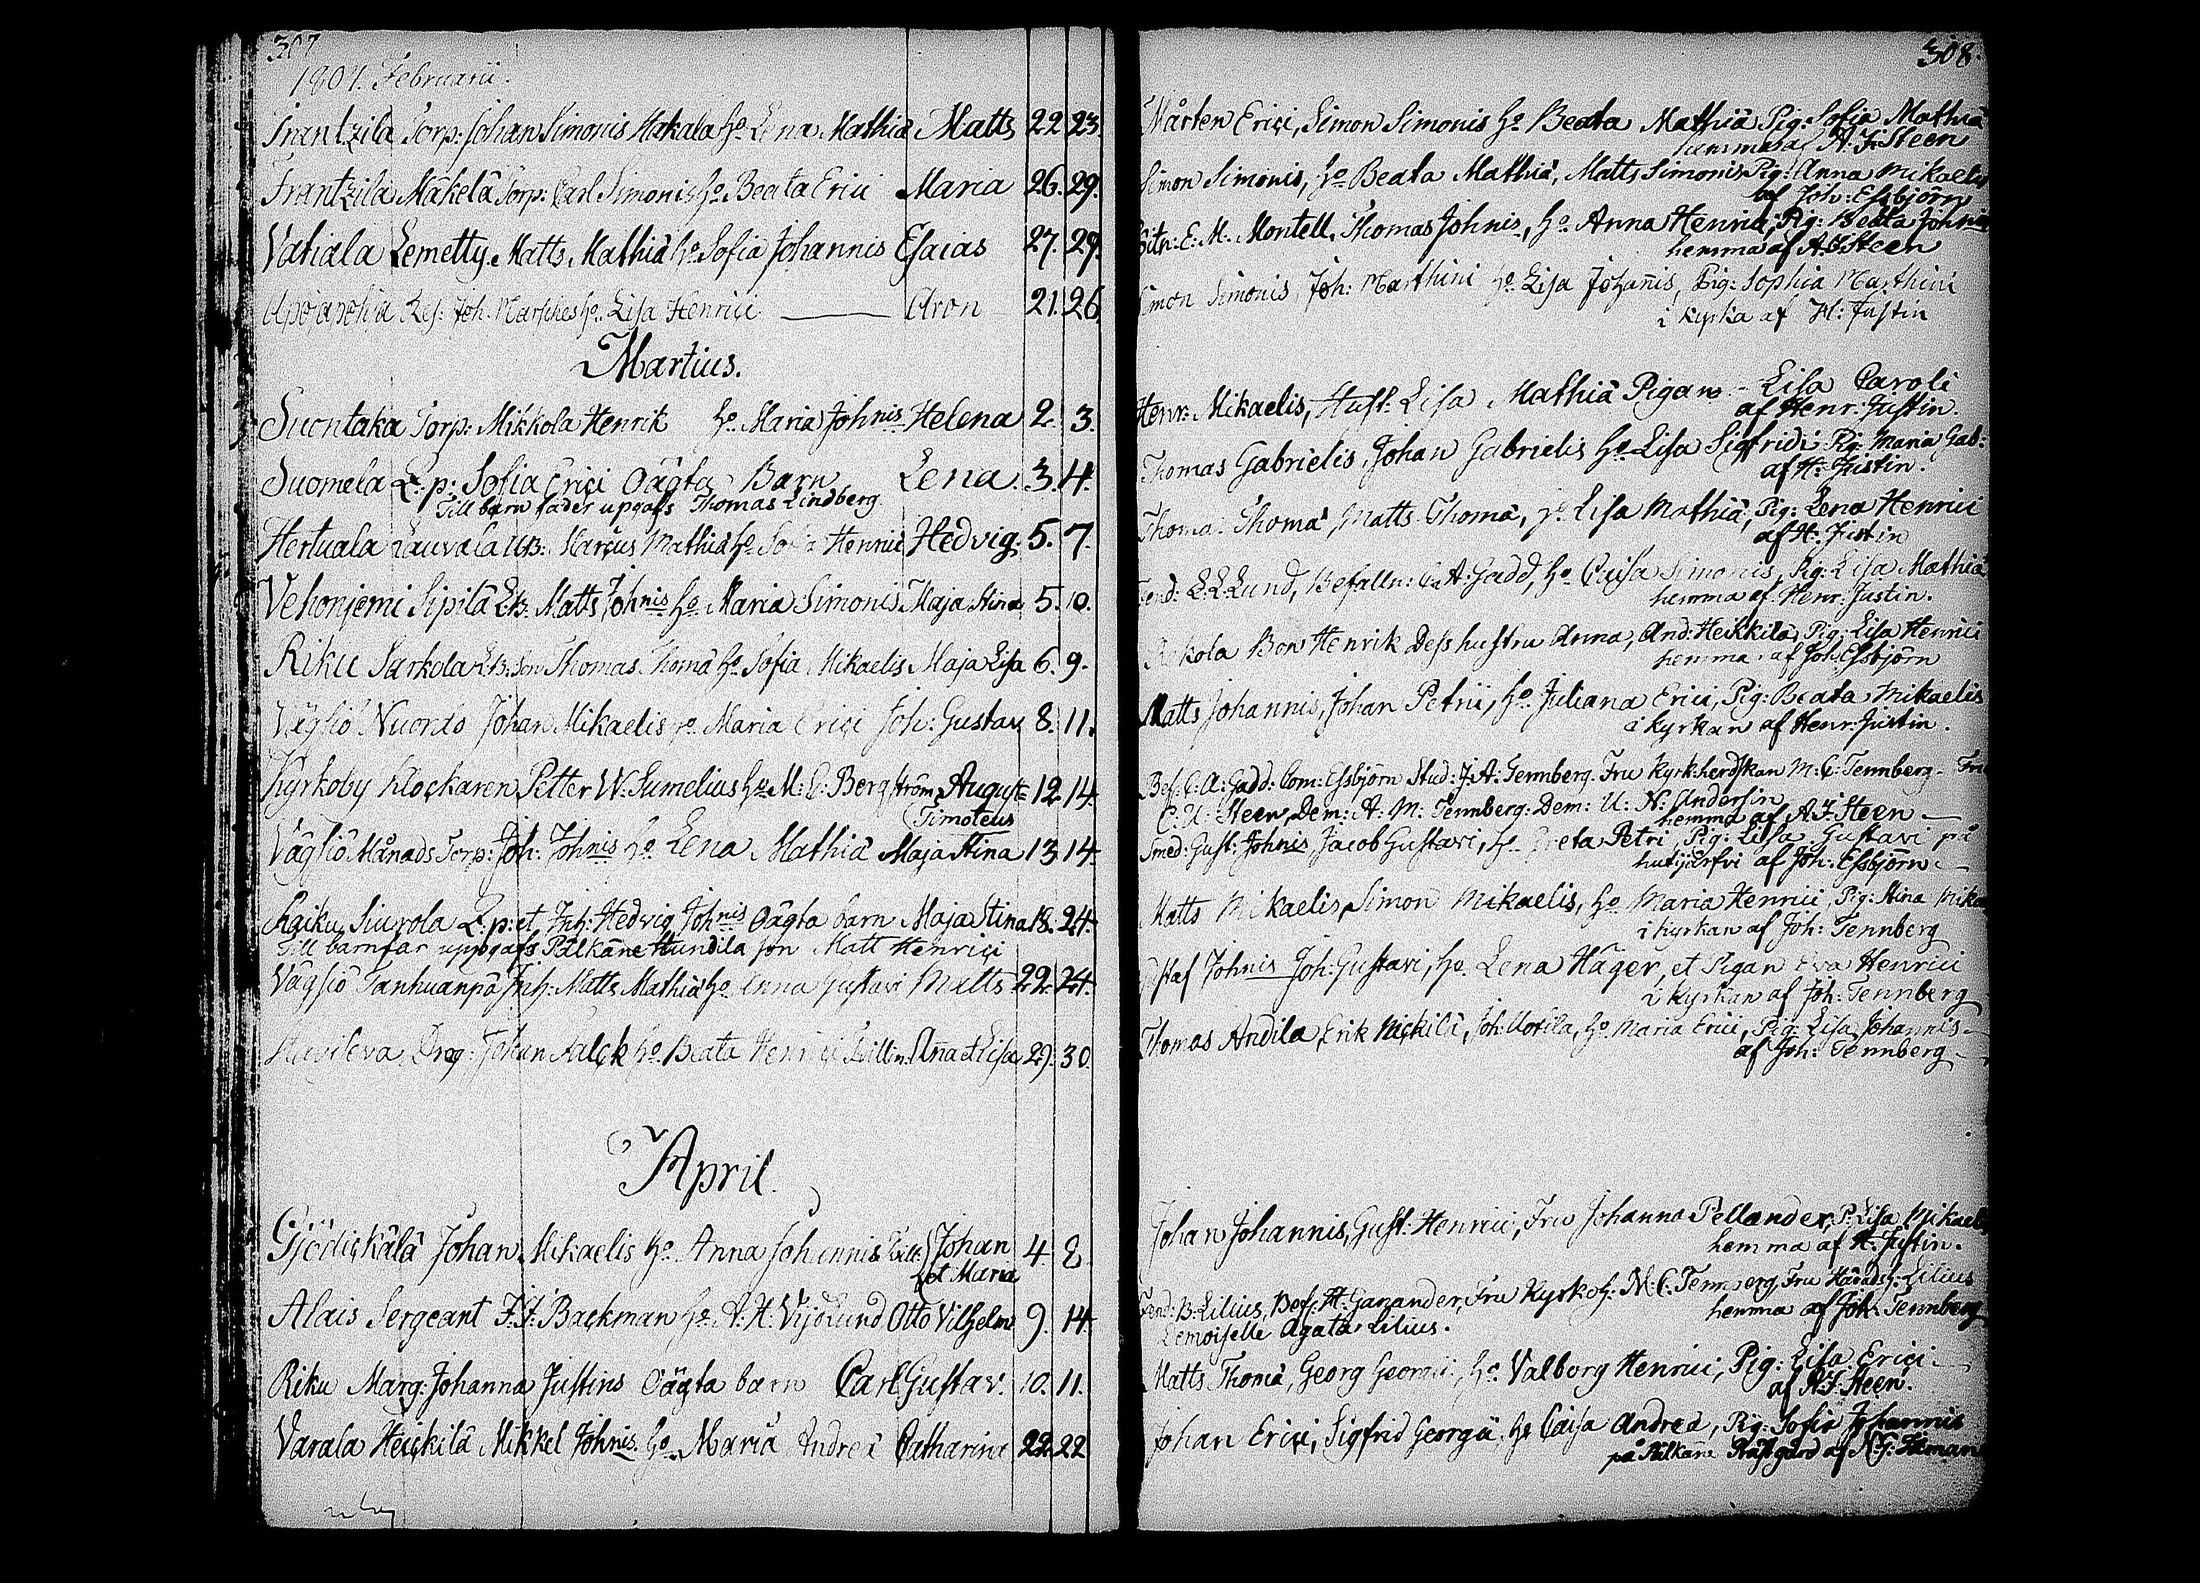 307
1807. Februarii.
Frantzila Torp: Johan Simonis Makala ho. Lena Mathiä Matts 22 23.
Frantzila Mäkelä Torp: Carl Simonis ho. Beata Erici Maria 26. 29.
Vatiala Lemetty Matts Mathiä ho. Sofia Johannis Esaias 27. 29.
Joh: ho. Lisa Henrici Aron 21. 26.
Martius.
Suontaka Torp: Mikkola Henrik ho. Maria Johnis Helena 2. 3.
Suomela L:p: Sofia Erici Oägta Barn Lena. 3. 4.
Till barn fader upgafs Thomas Lindberg
Hertuala Lauvala Marcus Mathiä ho. Sofia Henrici Hedvig. 5. 7.
Vehonjemi Sipilä LB. Matts Johnis ho. Maria Simonis Maja Stina 5. 10.
Riku Sarkola LB. Son Thomas Thomä ho. Sofia Mikaelis Maja Lisa 6. 9.
Vägsiö Nuordo Johan Mikaelis ho. Maria Erici Joh: Gustav 8. 11.
Kyrkoby Klockaren Petter W. Sumelius ho. M: C: Bergström August 12 14.
Timoteus
Vägsiö Månads Torp: Joh: Johnis ho. Lena Mathiä Maja Stina 13 14.
Kaiku Siurola L:p: et Inh: Hedvig Johnis Oägta barn Maja Stina 18. 24.
Till barnfar uppgafs Pälkäne Hundila son Matt Henrici
Vägsiö Tanhuanpä Inh: Matts Mathiä ho. Anna Gustavi Matts 22. 24.
Johan Falck ho. Beata Henrici Tvillin: Aña et Lisa 29. 30.
April.
Johan Mikaelis ho. Anna Johannis Tvill: Johan 4. 8
et Maria
Alais Sergeant F. J. Backman, ho. A. H. Otto Vilhelm 9. 14.
Riku Marg: Johanna Justins Oägta barn Carl Gustav. 10. 11.
Varala Heickilä Mikkel Johnis ho. Maria Andreä Catharina 22. 22
308.
Mårten Erici, Simon Simonis ho. Beata Mathiä Pig: Sofia Mathiä
hemma af A. J. Steen
Simon Simonis, ho. Beata Mathiä, Matts Simonis Pig: Anna Mikaelis
af Joh: Essbjörn
E. M. Montell, Thomas Johnis, ho. Anna Henrici, Pig: Beata Johnis
hemma af A. J. Steen
Simon Simonis, Joh: Marthini ho. Lisa Johañis, Pig: Sophia Marthini
i kyrka af H: Justin
Henr: Mikaelis, Hust: Lisa Mathiä Pigan Lisa Caroli
af Henr: Justin.
Thomas Gabrielis, Johan Gabrielis ho. Lisa Sigfridi Pig: Maria Gab:
af H: Justin.
Thoma: Thomä, Matts Thomä, ho. Lisa Mathiä, Pig: Lena Henrici
af H: Justin
L. Lund, Befalln: C. A: Gadd, ho. Caisa Simonis, Pig: Lisa Mathiä
hemma af Henr: Justin.
Bon Henrik Dess hustru Anna, And: Heikkilä, Pig: Lisa Henrici
hemma af Joh: Essbjörn
Matts Johannis, Johan Petrii, ho. Juliana Erici, Pig: Beata Mikaelis
i kyrkan af Henr. Justin.
Bef: C: A: Gadd: Com: Essbjörn Stud: J. A: Tennberg. Fru kyrkherdskan M: C: Tennberg. Fru
C: U: Steen, Dem: A: M: Tennberg: Dem: U: N: Andersin
hemma af A. J. Steen
Smed: Gust: Johnis, Jacob Gustavi, ho. Greta Petri, Pig: Lisa Gustavi på
hutijärfvi af Joh: Essbjörn
Matts Mikaelis, Simon Mikaelis, ho. Maria Henrici, Pig: Stina Mika
i kyrkan af Joh: Tennberg
Johnis Joh: Gustavi, ho. Lena Häger, et Pigan Eva Henrici
i kyrkan af Joh: Tennberg
Thomas Andila, Erik Nickilä, Joh: Uotila, ho. Maria Erici, Pig: Lisa Johannis
af Joh: Tennberg
Johan Johannis, Gust: Henrici, Fru Johanna Pellander, P: Lisa Mikaelis
hemma af H. Justin.
B: Lilius, Bef: H: Ganander, Fru Kyrkoh: M: C: Tennberg, Fru Häradsh: Lilius
hemma af Joh: Tennberg
Demoiselle Agata Lilius.
Matts Thomä, Georg Georgii, ho. Valborg Henrici, Pig: Lisa Erici
af A. J. Steen.
Johan Erici, Sigfrid Georgii, ho Caisa Andreä, Pig: Sofia Johannis
på Pälkäne Prästgård af